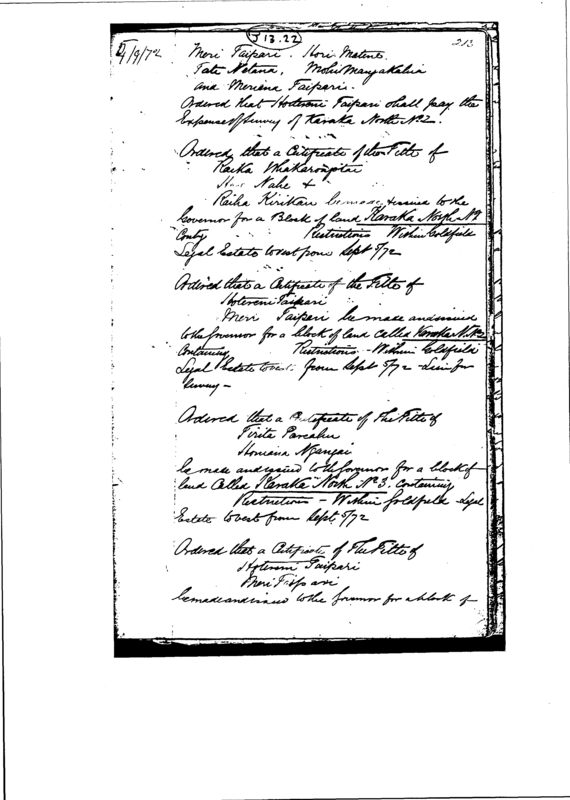 J 13.22
213
5/9/72 Meri Taipari. Hori Matene
Tate Netana, Mohi Mangakahia
and Meriana Taipari.
Ordered that Hotereni Taipari shall pay the
Expenses of Survey of Karaka North No 2.
Ordered that a Certificate of the Title of
Raika Whakarongotai
Nahe +
Raiha Kirikau be made & issued to the
Governor for a Block of land Karaka North No
Contg Restrictions Within Goldfield
Legal Estate to vest from Sept 5/72
Ordered that a Certificate of the Title of
Hotereni Taipari
Meri Taipari be made and issued
to the Governor for a block of land called Karaka N. No 2
Containing Restrictions - Within Goldfield
Legal Estate to vest from Sept 5/72 - Lien for
Survey -
Ordered that a Certificate of The Title of
Tirita
be made and issued to the Governor for a block of
land Called Karaka North No 3. Containing
Restrictions - Within Goldfield - Legal
Estate to vest from Sept. 5/72
Ordered that a Certificate of The Title of
Hotereni Taipari
Meri Taipari
be made and issued to the Governor for a block of